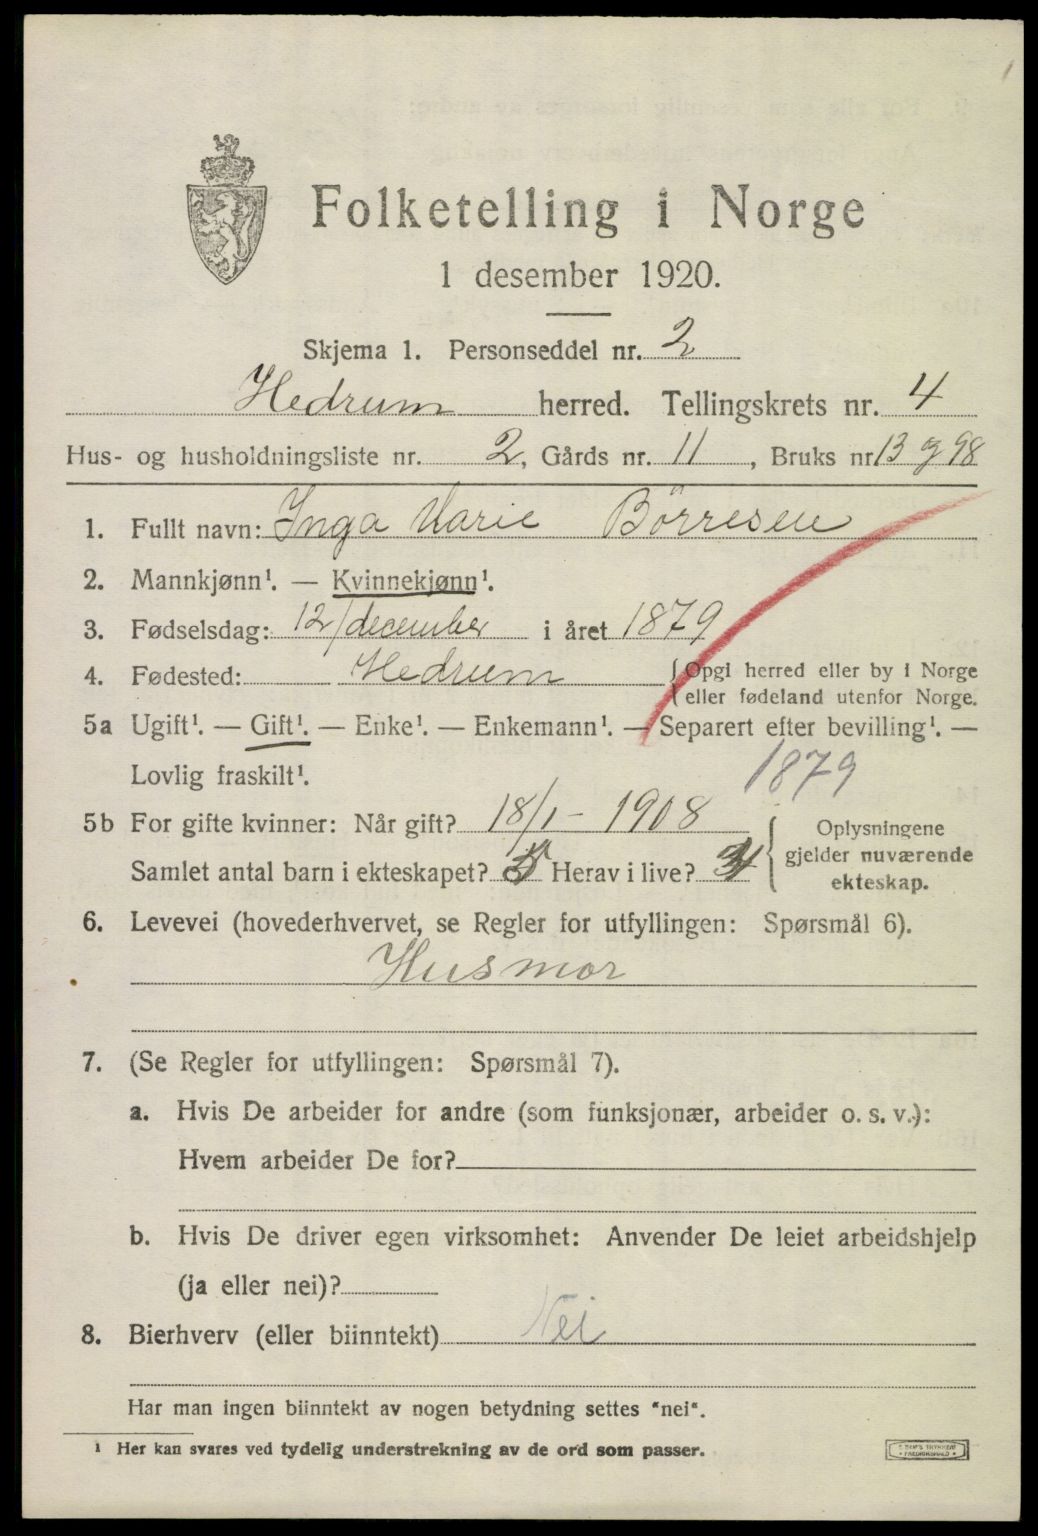 Folketelling i Norge
1 desember 1920.
Skjema 1. Personseddel nr. 2
Hedrum herred. Tellingskrets nr. 4
Hus- og husholdningsliste nr. 2, Gårds nr. 11, Bruks nr 13 og 98
1. Fullt navn: Inga Marie Börresen
2. Mannkjønn¹. — Kvinnekjønn¹.
3. Fødselsdag: 12/december i året 1879
4. Fødested: Hedrum {Opgi herred eller by i Norge
eller fødeland utenfor Norge.
5a Ugift¹. — Gift¹. — Enke¹. — Enkemann¹. — Separert efter bevilling¹. —
Lovlig fraskilt¹.
1879
5b For gifte kvinner: Når gift? 18/1 - 1908
Samlet antal barn i ekteskapet? Herav i live?
{ Oplysningene
gjelder nuværende
ekteskap.
6. Levevei (hovederhvervet, se Regler for utfyllingen: Spørsmål 6).
Husmor
7. (Se Regler for utfyllingen: Spørsmål 7).
a. Hvis De arbeider for andre (som funksjonær, arbeider o. s. v.):
Hvem arbeider De for?
b. Hvis De driver egen virksomhet: Anvender De leiet arbeidshjelp
(ja eller nei)?
8. Bierhverv (eller biinntekt) Nei
Har man ingen biinntekt av nogen betydning settes "nei".
¹ Her kan svares ved tydelig understrekning av de ord som passer.